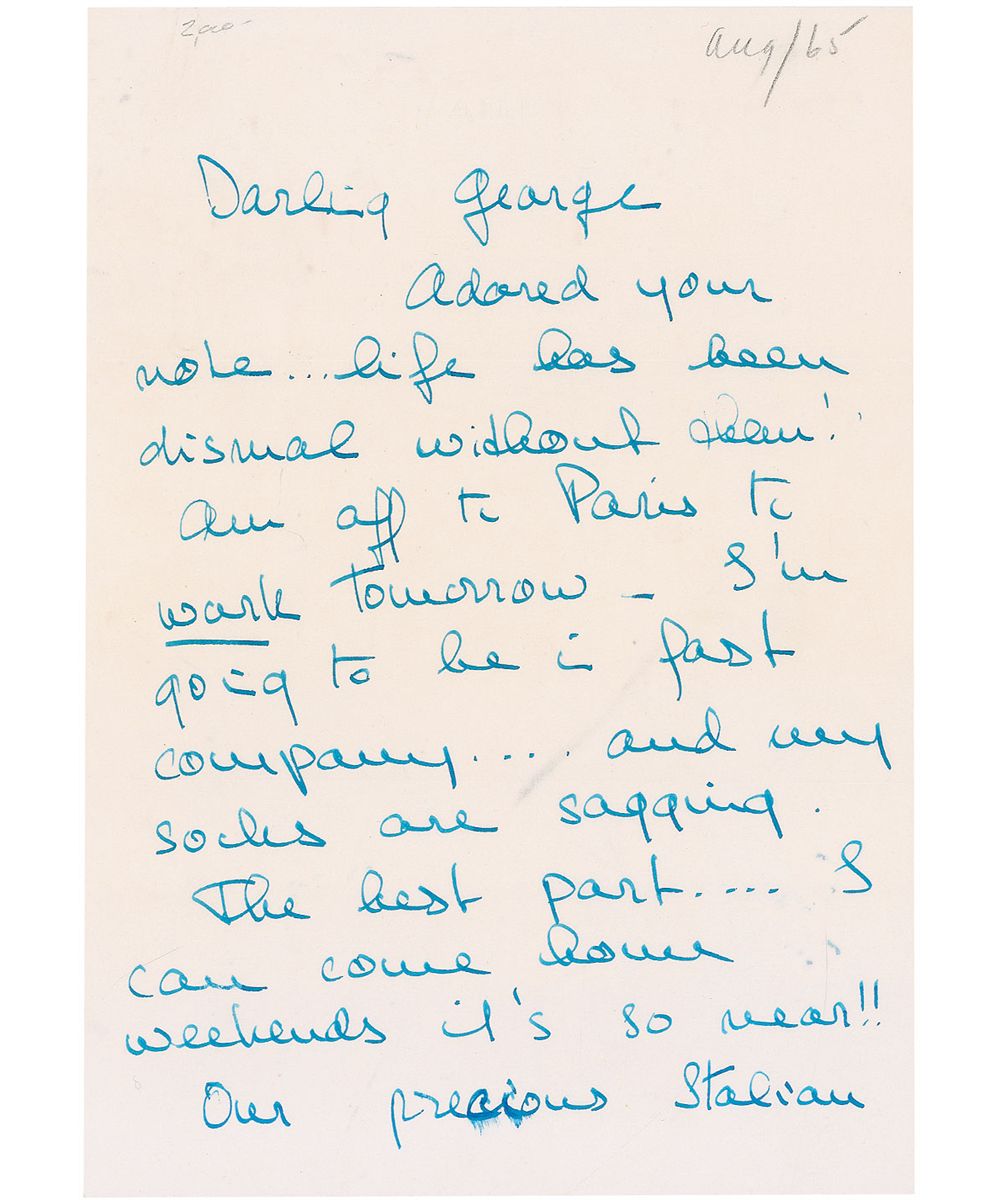 Aug/65
Darling George
Adored your
note...life has been
dismal without them!
Am off to Paris to
work tomorrow - I'm
going to be in fast
company..... and my
socks are sagging.
The best part..... I
can come home
weekends it's so near!!
Our precious Italian